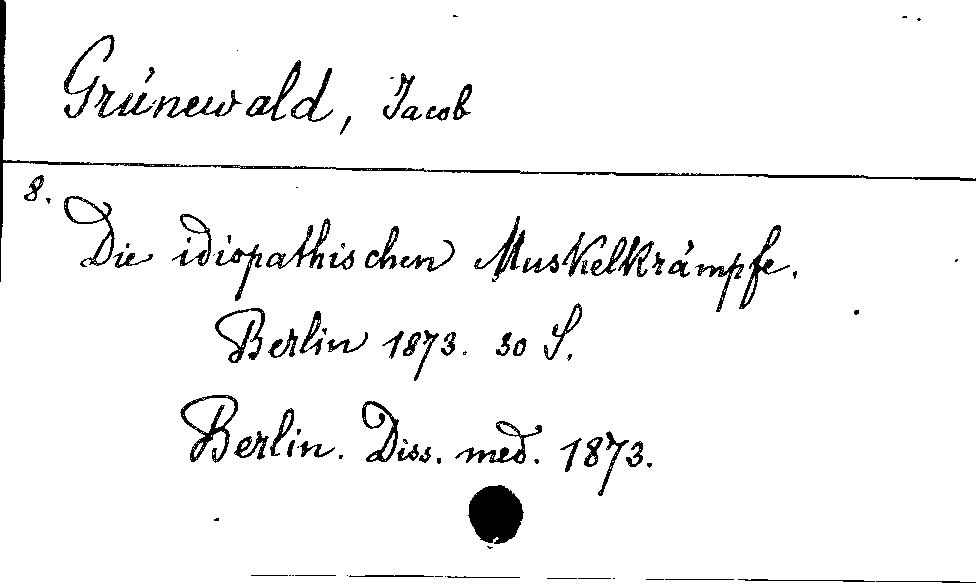 Grünewald, Jacob
8.
Die idiopathischen Muskelkrämpfe.
Berlin 1873. 30 S.
Berlin. Diss. med. 1873.